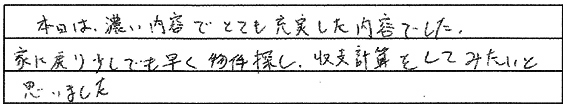 本日は、濃い内容でとても充実した内容でした。
家に戻り少しでも早く物件探し、収支計算をしてみたいと
思いました